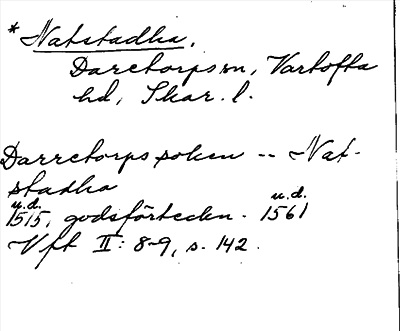 * Natstadha.
Daretorps sn, Vartofta
hd, Skar. l.
Darretorps soken -- Nat-
stadha
u.d. u.d.
1515, godsförteckn. 1561
Vft II: 8-9, s. 142.